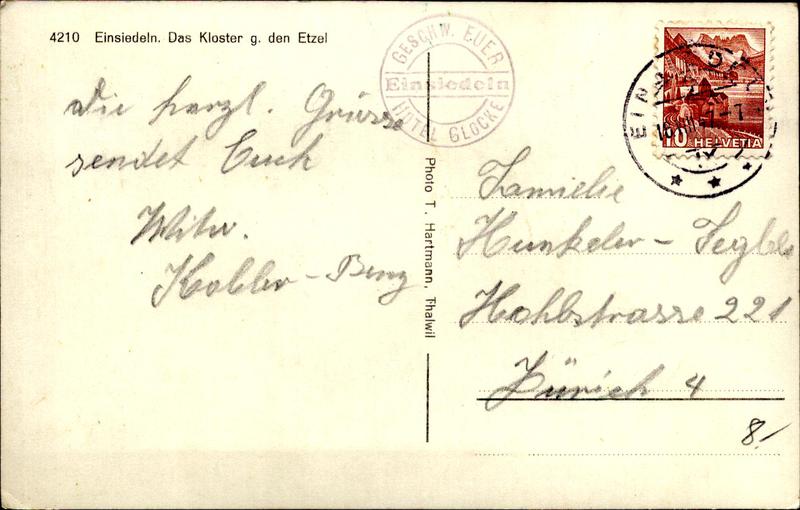 4210 Einsiedeln. Das Kloster g. den Etzel
GESCHW. EUER
Einsiedeln
HOTEL GLOCKE
10 HELVETIA
Die herzl. Grüsse
sendet Euch
Witw.
Kobler-Benz
Photo T. Hartmann, Thalwil
Familie
Hunkeler-
Hohlstrasse 221
Zürich 4
8.-